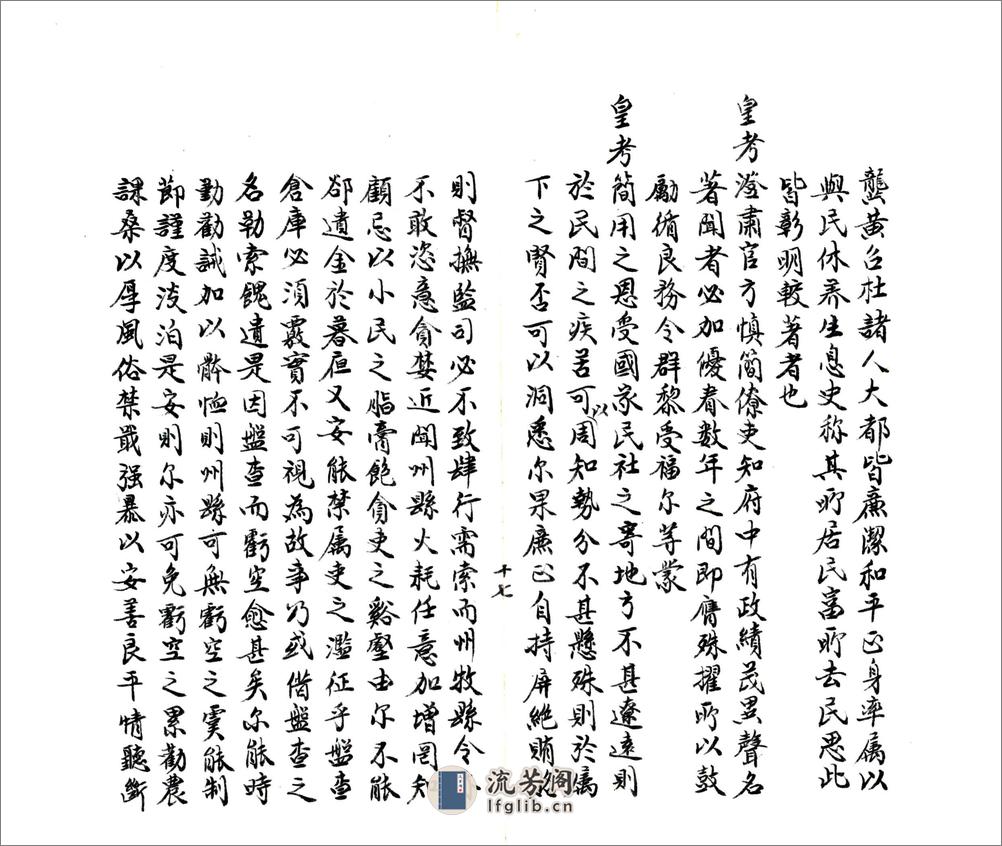 龔黃召杜諸人大都皆廉潔和平正身率屬以
與民休養生息史称其所居民富所去民思此
皆彰明較著者也
皇考澄肅官方慎簡僚吏知府中有政績茂異聲名
著聞者必加優眷数年之間即膺殊擢所以鼓
勵循良務令群黎受福尔等蒙
皇考簡用之恩受國家民社之寄地方不甚遼遠則
於民間之疾苦可以周知勢分不甚懸殊則於属
下之賢否可以洞悉尔果廉正自持屏絶賄
十七
則督撫監司必不致肆行需索而州牧縣令
不敢恣意貪婪近聞州縣火耗任意加增罔知
顧忌以小民之脂膏飽貪吏之谿壑由尔不能
郤遺金於暮夜又安能禁属吏之濫征乎盤查
倉庫必須覈實不可視為故事乃或借盤查之
名勒索餽遺是因盤查而虧空愈甚矣尔能時
勤勸誡加以軫恤則州縣可無虧空之虞能制
節謹度淡泊是安則尔亦可免虧空之累勸農
課桑以厚風俗禁戢强暴以安善良平情聽斷
流芳阁
lfglib.cn